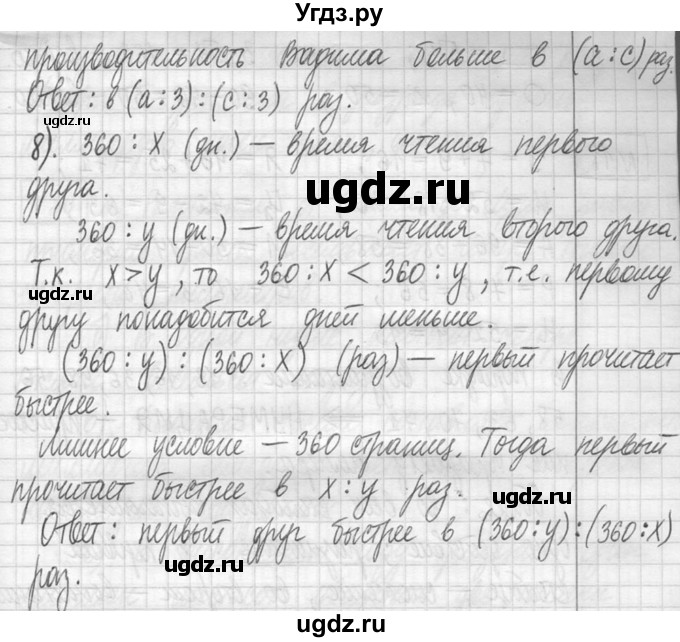 Угдз.ру
производительность Вадима больше в (а:с) раз.
Ответ: в (а:3):(с:3) раз.
gdz.ru
8). 360:х (дн.) — время чтения первого
друга.
ugdz.ru
360:у (дн.) — время чтения второго друга.
Т.к. х>у, то 360:х < 360:у, т.е. первому
gdz.ru
другу понадобится дней меньше.
(360:у):(360:х) (раз) — первый прочитает
быстрее.
Лишнее условие — 360 страниц. Тогда первый
прочитает быстрее в х:у раз.
ugdz.ru
Ответ: первый друг быстрее в (360:у):(360:х)
раз.
ugdz.ru
ugdz.ru